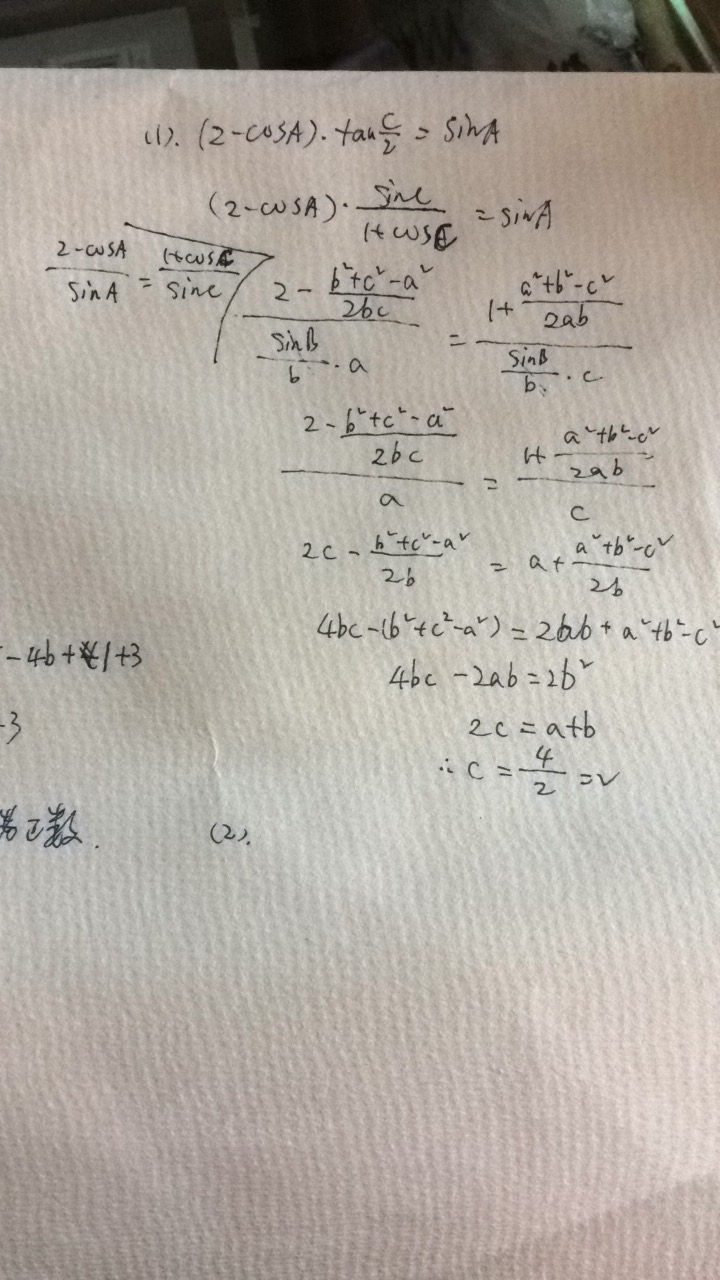 (1). (2-cosA)·tan\frac{C}{2} = sinA
(2-cosA)·\frac{sinC}{1+cosC} = sinA
\frac{2-cosA}{sinA} = \frac{1+cosC}{sinC}
\frac{2-\frac{b²+c²-a²}{2bc}}{\frac{sinB}{b}·a} = \frac{1+\frac{a²+b²-c²}{2ab}}{\frac{sinB}{b}·c}
\frac{2-\frac{b²+c²-a²}{2bc}}{a} = \frac{1+\frac{a²+b²-c²}{2ab}}{c}
2c - \frac{b²+c²-a²}{2b} = a + \frac{a²+b²-c²}{2b}
4bc-(b²+c²-a²) = 2ab + a²+b²-c²
-4b+1+3
4bc-2ab=2b²
-3
2c=a+b
∴ c = \frac{4}{2} = 2
正数.
(2).